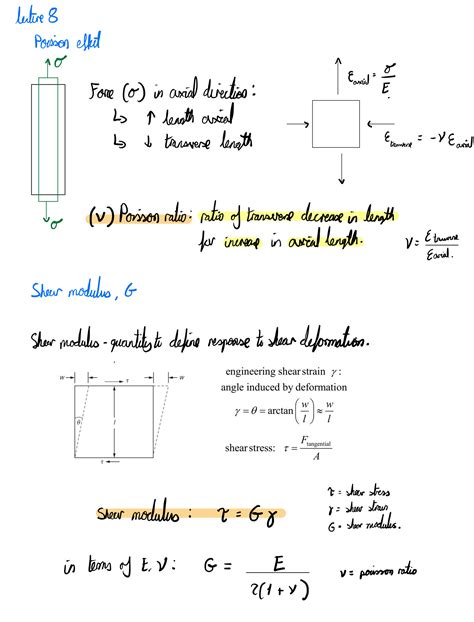 lecture 8
Poisson effect
σ
Force (σ) in axial direction:
↳ ↑ length axial
↳ ↓ transverse length
σ
ε axial = σ/E
ε transverse = -ν ε axial
(ν) Poisson ratio: ratio of transverse decrease in length
for increase in axial length.
ν = ε transverse / ε axial
Shear modulus, G
Shear modulus - quantity to define response to shear deformation.
w τ w
θ l
τ
engineering shear strain γ :
angle induced by deformation
γ = θ = arctan(w/l) ≈ w/l
shear stress: τ = F tangential / A
τ = shear stress
γ = shear strain
G = shear modulus.
Shear modulus : τ = G γ
in terms of E, ν : G = E / 2(1 + ν)
ν = poisson ratio